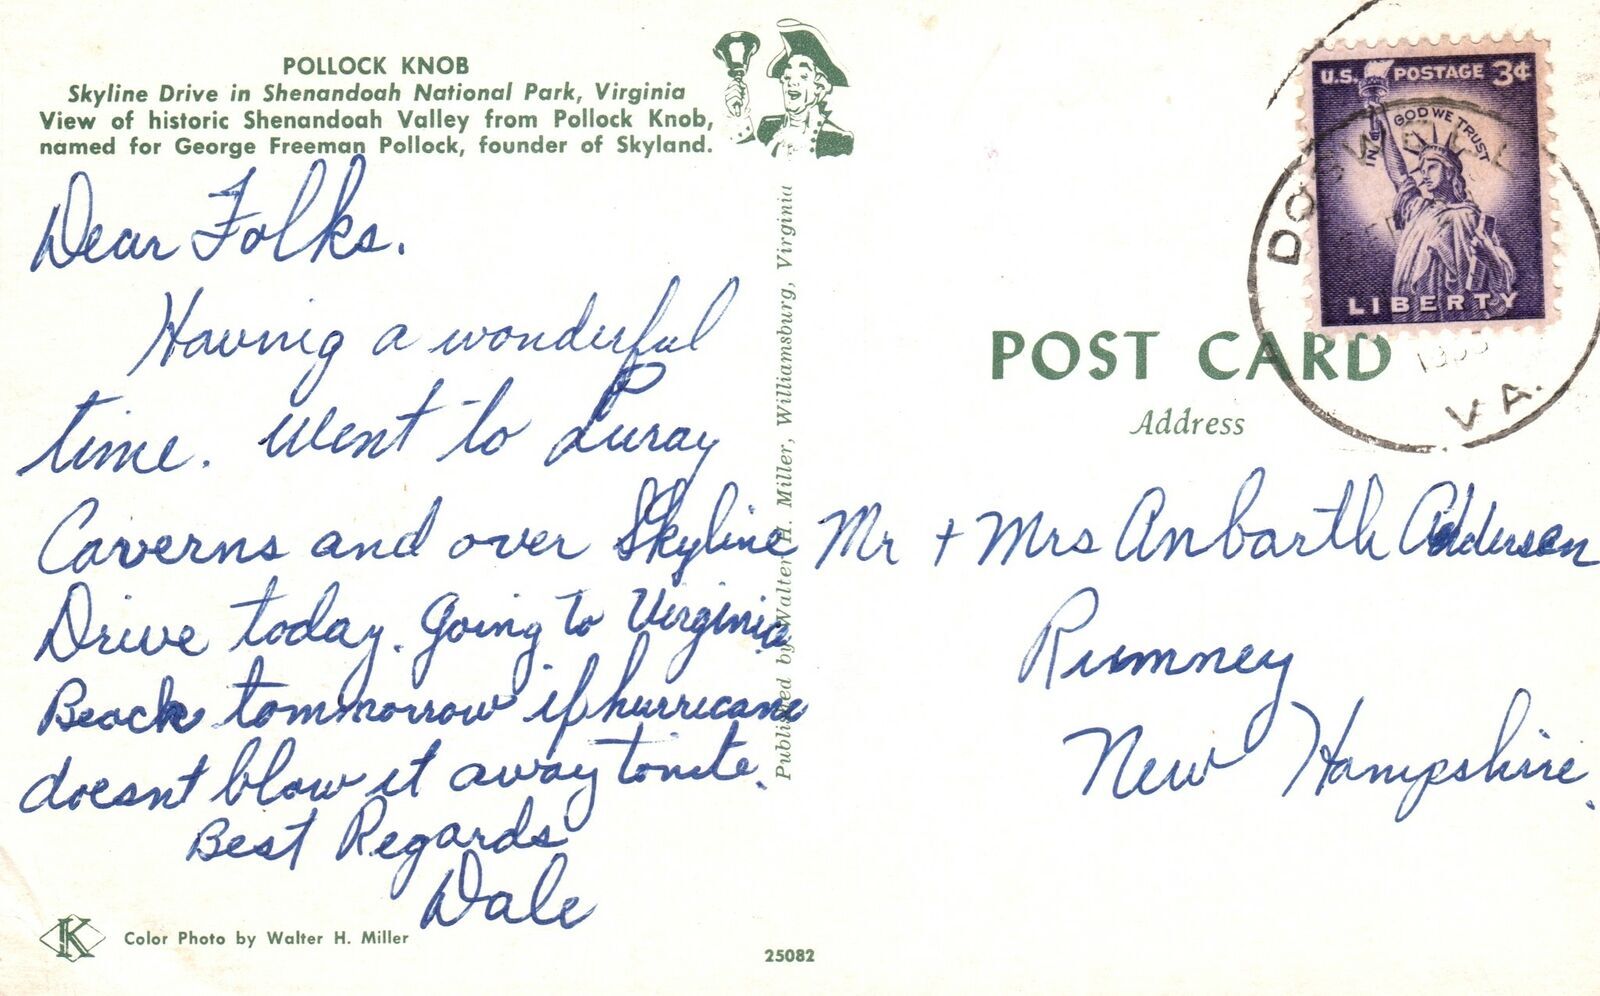 POLLOCK KNOB
Skyline Drive in Shenandoah National Park, Virginia
View of historic Shenandoah Valley from Pollock Knob,
named for George Freeman Pollock, founder of Skyland.
Dear Folks.
Having a wonderful
time. Went to Luray
Caverns and over Skyline
Drive today. Going to Virginia
Beach tommorrow if hurricane
doesnt blow it away tonite.
Best Regards
Dale
K
Color Photo by Walter H. Miller
25082
Published by Walter H. Miller, Williamsburg, Virginia
U.S. POSTAGE 3¢
IN GOD WE TRUST
LIBERTY
VA.
POST CARD
Address
Mr + Mrs Anbarth Andersen
Rumney
New Hampshire.